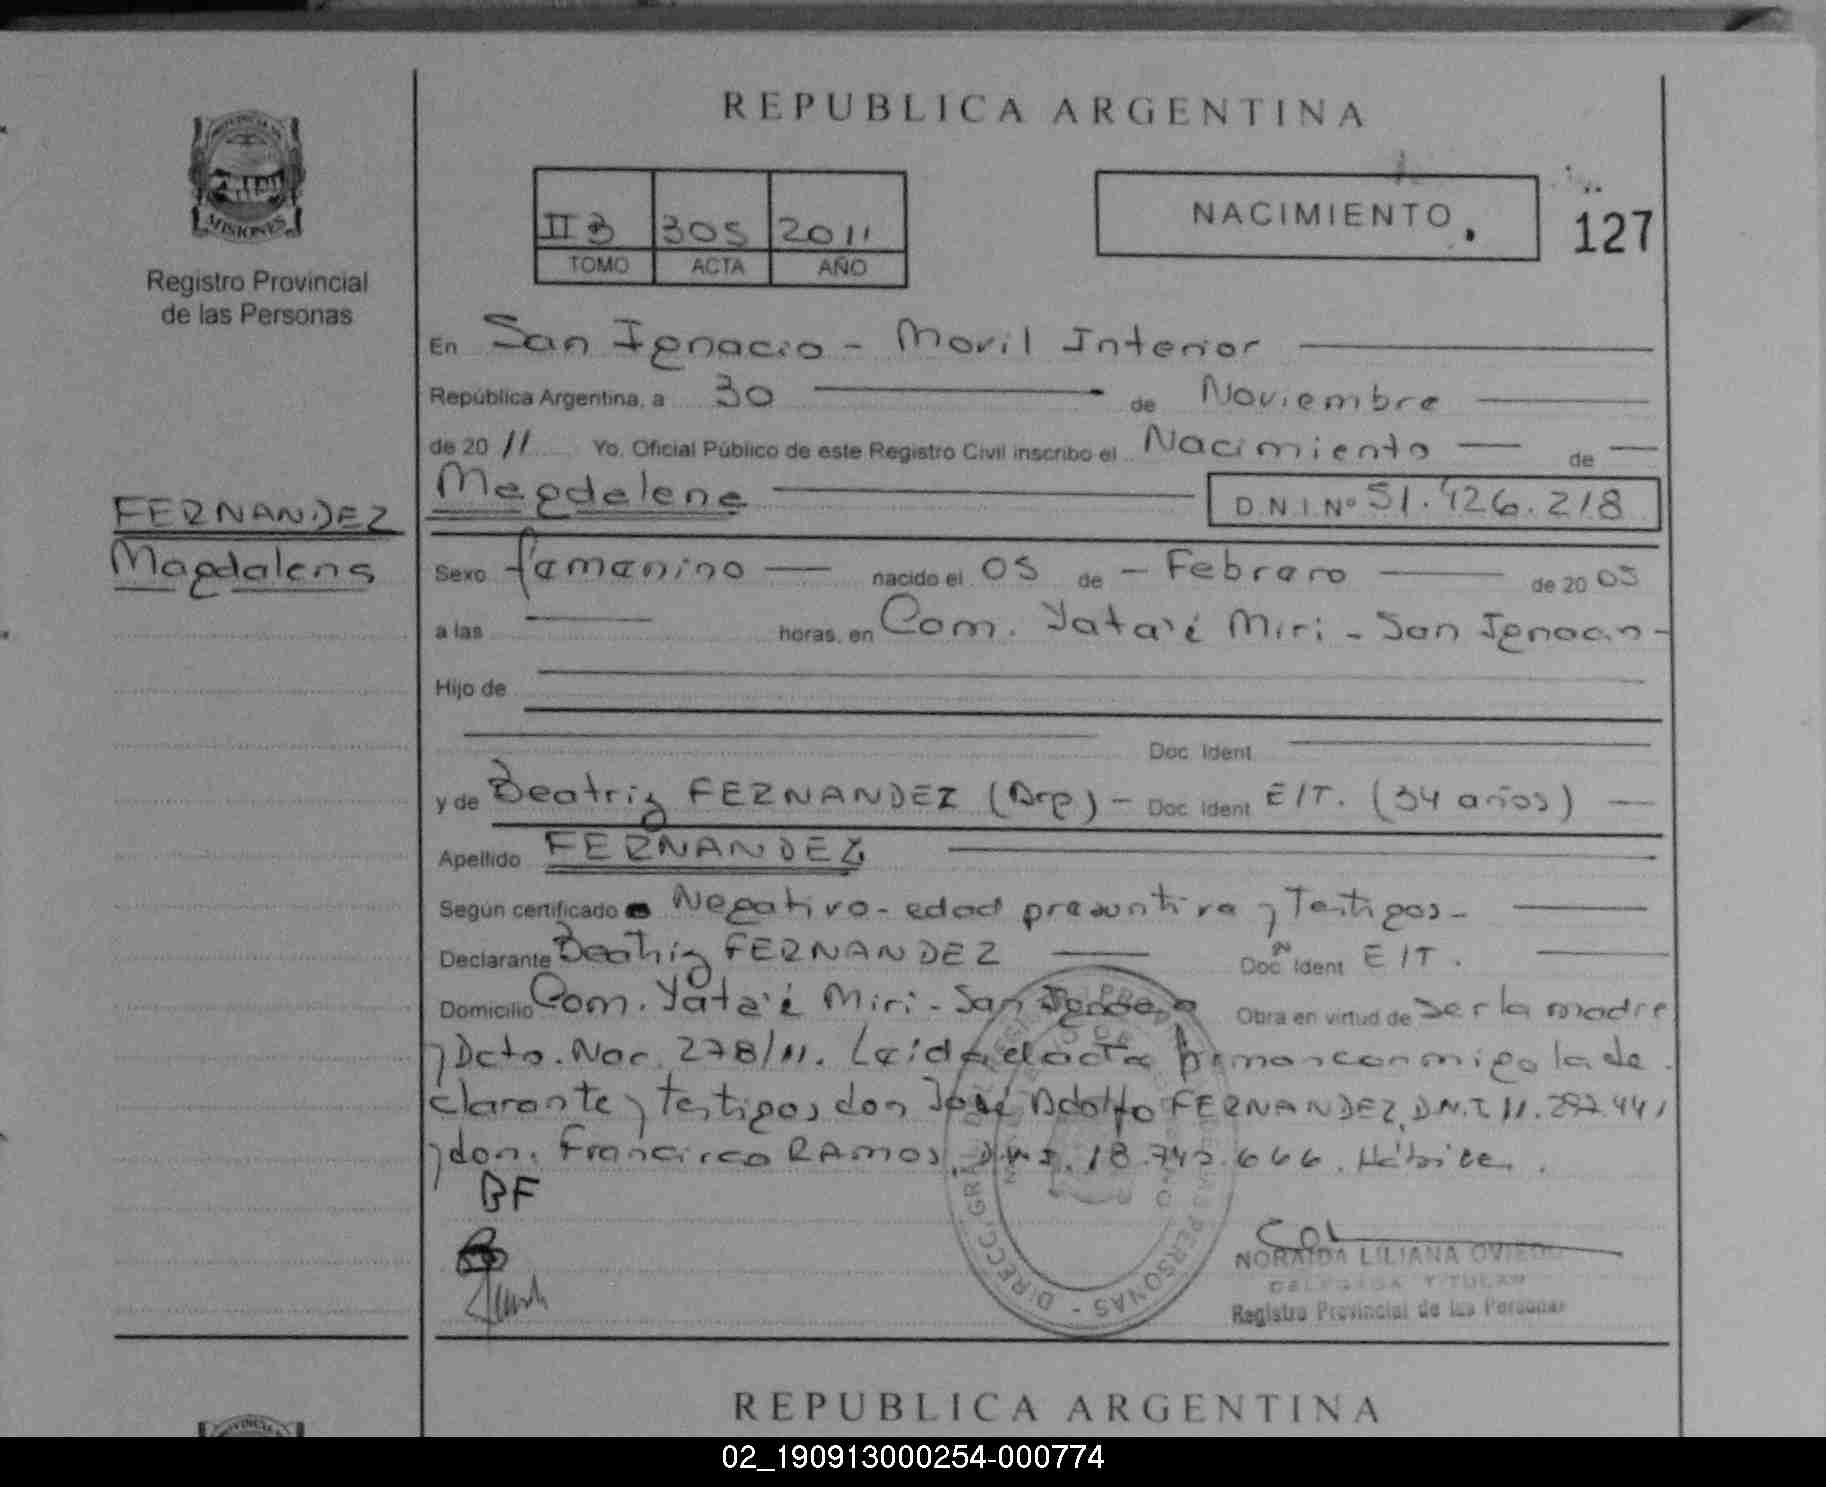 REPUBLICA ARGENTINA
PROVINCIA DE
MISIONES
Registro Provincial
de las Personas
II B 305 2011
TOMO ACTA AÑO
NACIMIENTO.
127
En San Ignacio - Movil Interior
República Argentina, a 30 de Noviembre
de 20 11 Yo, Oficial Público de este Registro Civil inscribo el Nacimiento de
FERNANDEZ
Magdalena
Magdalena D.N.I.Nº 51.426.218
Sexo femenino nacido el 05 de - Febrero de 20 05
a las horas, en Com. Yata'i Miri - San Ignacio -
Hijo de
Doc. Ident
y de Beatriz FERNANDEZ (Arg) - Doc. Ident E/T. (34 años)
Apellido FERNANDEZ
Según certificado Negativo - edad presuntiva y Testigos -
Declarante Beatriz FERNANDEZ Doc. Ident E/T.
Domicilio Com. Yata'i Miri - San Ignacio Obra en virtud de ser la madre
y Dcto. Nac. 278/11. Leída el acta firman conmigo la de
clarante y testigos don José Adolfo FERNANDEZ, D.N.I 11.297.441
y don. Francisco RAMOS, D.N.I. 18.742.666.
BF
NORAIDA LILIANA OVIEDO
DELEGADA TITULAR
Registro Provincial de las Personas
REPUBLICA ARGENTINA
02_190913000254-000774